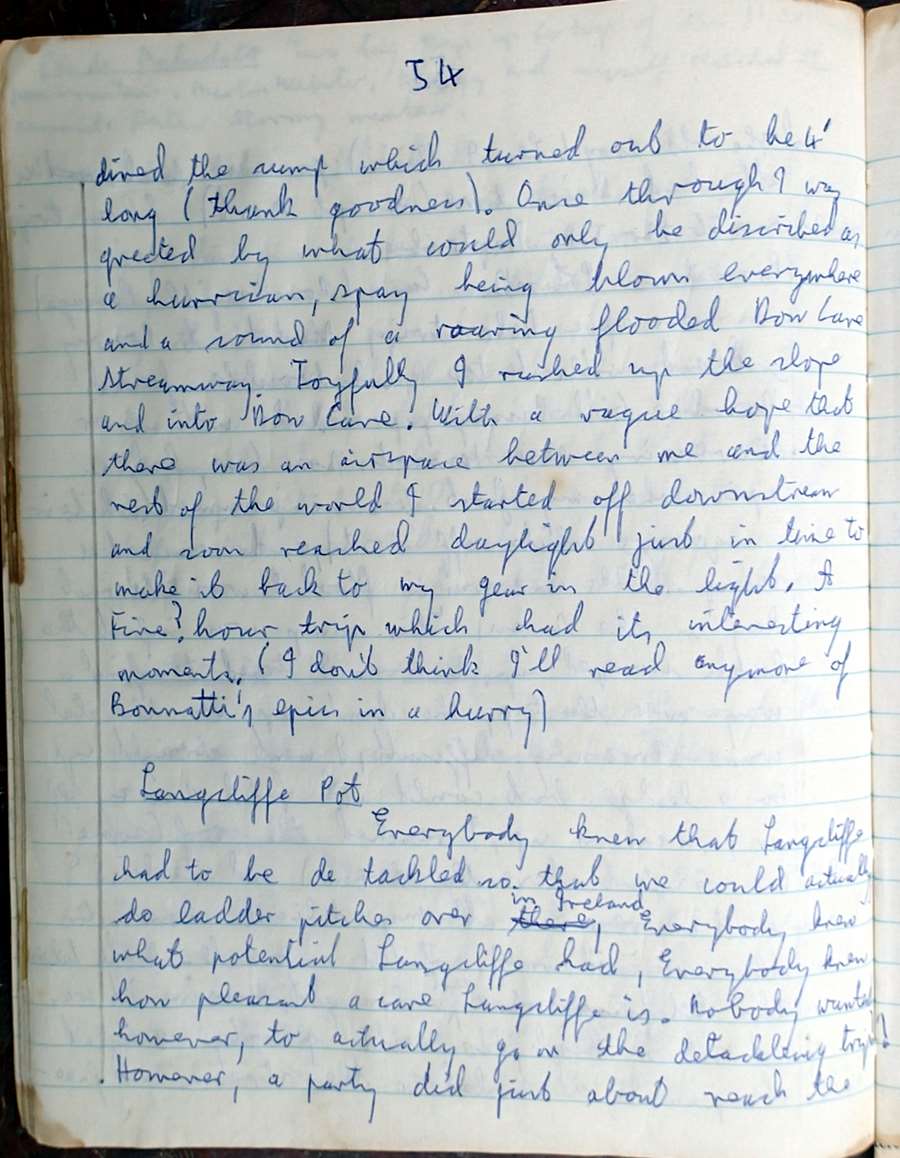 54
dived the sump which turned out to be 4'
long (thank goodness). Once through I was
greeted by what could only be discribed as
a hurrican, spay being blown everywhere
and a sound of a roaring flooded Dow Cave
streamway. Joyfully I rushed up the slope
and into Dow Cave. With a vague hope that
there was an airspace between me and the
rest of the world I started off downstream
and soon reached daylight just in time to
make it back to my gear in the light. A
Five? hour trip which had its interesting
moments. (I don't think I'll read anymore of
Bonnatti's epics in a hurry)
Langcliffe Pot
Everybody knew that Langcliffe
had to be de tackled so that we could actually
do ladder pitches over there in Ireland, Everybody knew
what potential Langcliffe had, Everybody knew
how pleasant a cave Langcliffe is. Nobody wanted
however, to actually go on the detackling trip!
However, a party did just about reach the